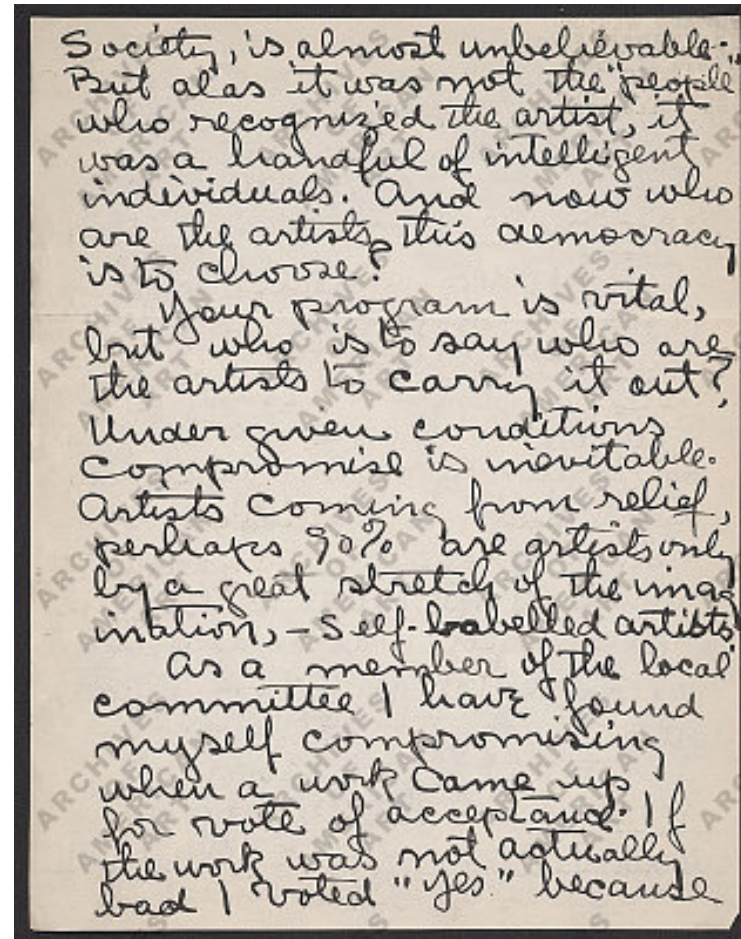 Society, is almost unbelievable.
But alas it was not the "people"
who recognized the artist, it
was a handful of intelligent
individuals. And now who
are the artists this democracy
is to choose?
Your program is vital,
but who is to say who are
the artists to carry it out?
Under given conditions
compromise is inevitable.
Artists coming from relief,
perhaps 90% are artists only
by a great stretch of the imag
ination, - Self-labelled artists.
As a member of the local
committee I have found
myself compromising
when a work came up
for vote of acceptance. If
the work was not actually
bad I voted "yes" because
ARCHIVES
OF
AMERICAN
ART